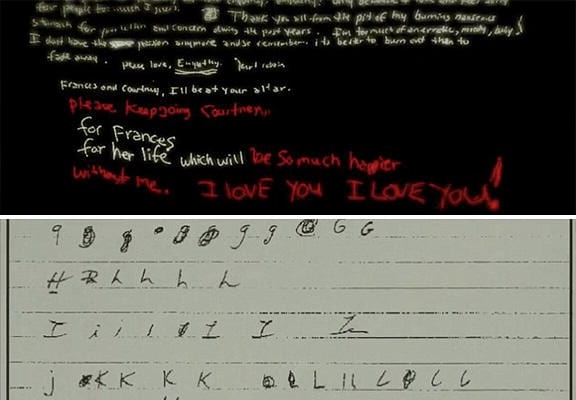 for people
Thank you all from the pit of my burning nauseous
stomach for your letters and concern during the past years. I'm too much of an erratic, moody, baby!
I dont have the passion anymore and so remember, its better to burn out then to
fade away. peace love, Empathy. Kurt Cobain
Frances and Courtney, I'll be at your altar.
please keep going Courtney,,,
for Frances
for her life which will be so much happier
without me. I LOVE YOU I LOVE YOU!
g g g g G G
H h h h h
I i i I I I
j K K K K L L L L L